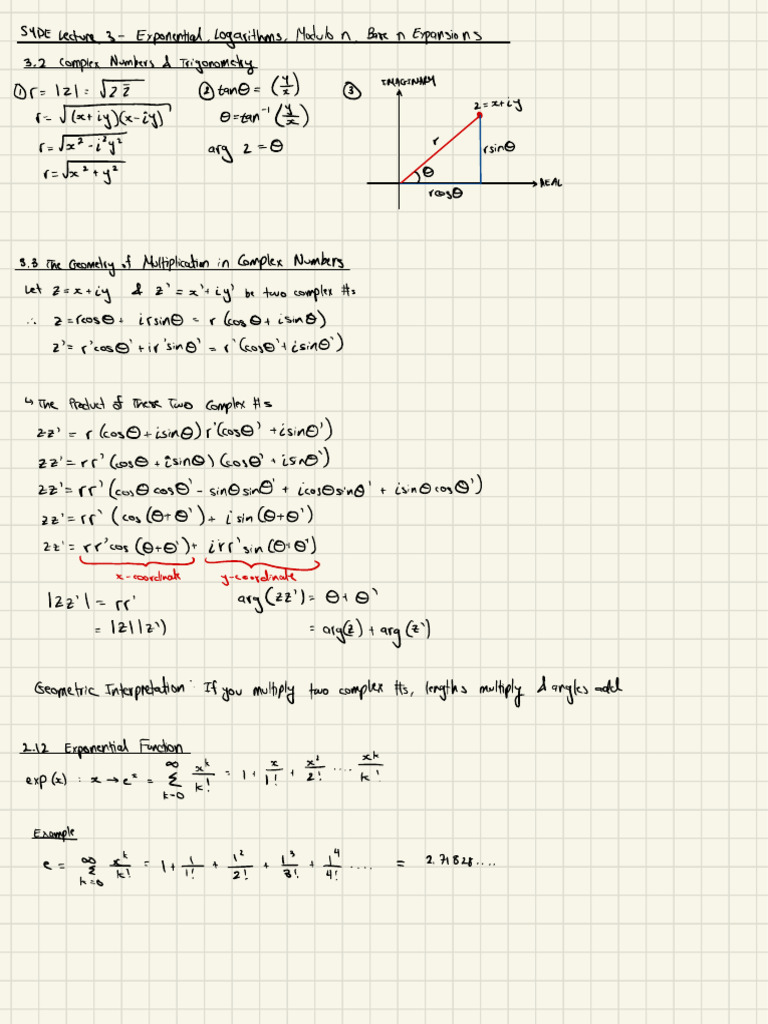 SYDE Lecture 3 - Exponential, Logarithms, Modulo n, Base n Expansions
3.2 Complex Numbers & Trigonometry
① r = |z| = √(z z̄)
r = √((x+iy)(x-iy))
r = √(x² - i²y²)
r = √(x² + y²)
② tanθ = (y/x)
θ = tan⁻¹(y/x)
arg z = θ
③
IMAGINARY
z = x+iy
r
rsinθ
θ
REAL
rcosθ
3.3 The Geometry of Multiplication in Complex Numbers
Let z = x+iy & z' = x'+iy' be two complex #s
∴ z = rcosθ + irsinθ = r(cosθ + isinθ)
z' = r'cosθ' + ir'sinθ' = r'(cosθ' + isinθ')
↳ The Product of These Two Complex #s
zz' = r(cosθ + isinθ) r'(cosθ' + isinθ')
zz' = rr'(cosθ + isinθ)(cosθ' + isinθ')
zz' = rr'(cosθcosθ' - sinθsinθ' + icosθsinθ' + isinθcosθ')
zz' = rr'(cos(θ+θ') + isin(θ+θ')
zz' = rr'cos(θ+θ') + irr'sin(θ+θ')
x-coordinate
y-coordinate
|zz'| = rr'
= |z||z')
arg(zz') = θ + θ'
= arg(z) + arg(z')
Geometric Interpretation: If you multiply two complex #s, lengths multiply & angles add
2.12 Exponential Function
exp(x) : x → eˣ = ∞Σk=0 xᵏ/k! = 1 + x/1! + x²/2! .... xᵏ/k!
Example
e = ∞Σk=0 xᵏ/k! = 1 + 1/1! + 1²/2! + 1³/3! + 1⁴/4! .... = 2.71828....